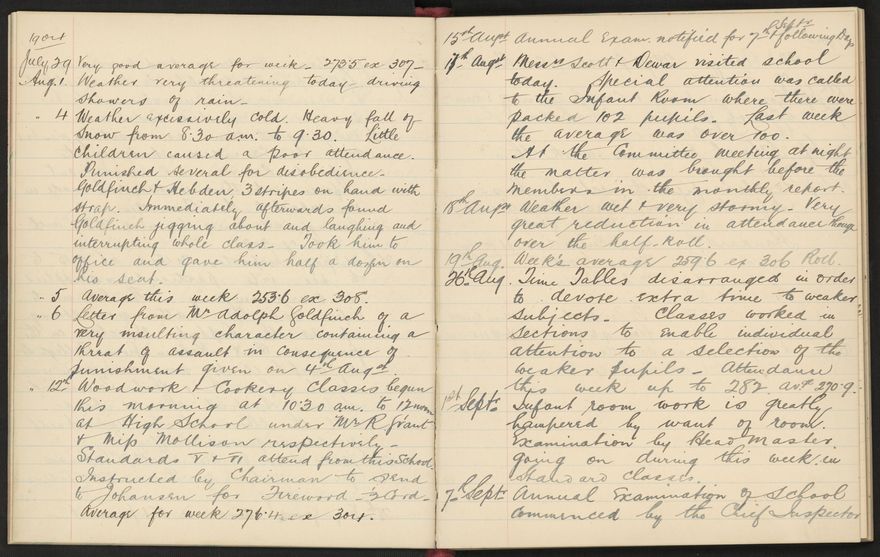 1904
July 29 Very good average for week - 273.5 ex 307 -
Aug. 1 Weather very threatening today - driving
showers of rain -
" 4 Weather excessively cold. Heavy fall of
snow from 8.30 a.m. to 9.30. Little
children caused a poor attendance.
Punished several for disobedience -
Goldfinch & Hebden, 3 stripes on hand with
strap. Immediately afterwards found
Goldfinch jigging about and laughing and
interrupting whole class - Took him to
office and gave him half a dozen on
his seat.
" 5 Average this week 253.6 ex 308.
" 6 Letter from Mr Adolph Goldfinch of a
very insulting character containing a
threat of assault in consequence of
punishment given on 4th Augst.
" 12th Woodwork & Cookery Classes began
this morning at 10.30 a.m. to 12 noon
at High School under Mr R Grant
& Miss Mollison respectively -
Standards V & VI attend from this School.
Instructed by Chairman to send
to Johansen for Firewood - 2 Cord -
Average for week 276.4 ex 304.
15th Augst Annual Exam. notified for 7th Septr & following Days
17th Augst Messrs Scott & Dewar visited school
today. Special attention was called
to the Infant Room where there were
packed 102 pupils. Last week
the average was over 100.
At the Committee meeting at night
the matter was brought before the
members in the monthly report.
18th Augst Weather wet & very stormy - Very
great reduction in attendance though
over the half-roll.
19th Aug. Week's average 259.6 ex 306 Roll.
26th Aug. Time Tables disarranged in order
to devote extra time to weaker
subjects - Classes worked in
sections to enable individual
attention to a selection of the
weaker pupils - Attendance
this week up to 282 avt 270.9.
1st Septr Infant room work is greatly
hampered by want of room.
Examination by Head Master
going on during this week in
Standard Classes.
7th Septr Annual Examination of School
commenced by the Chief Inspector